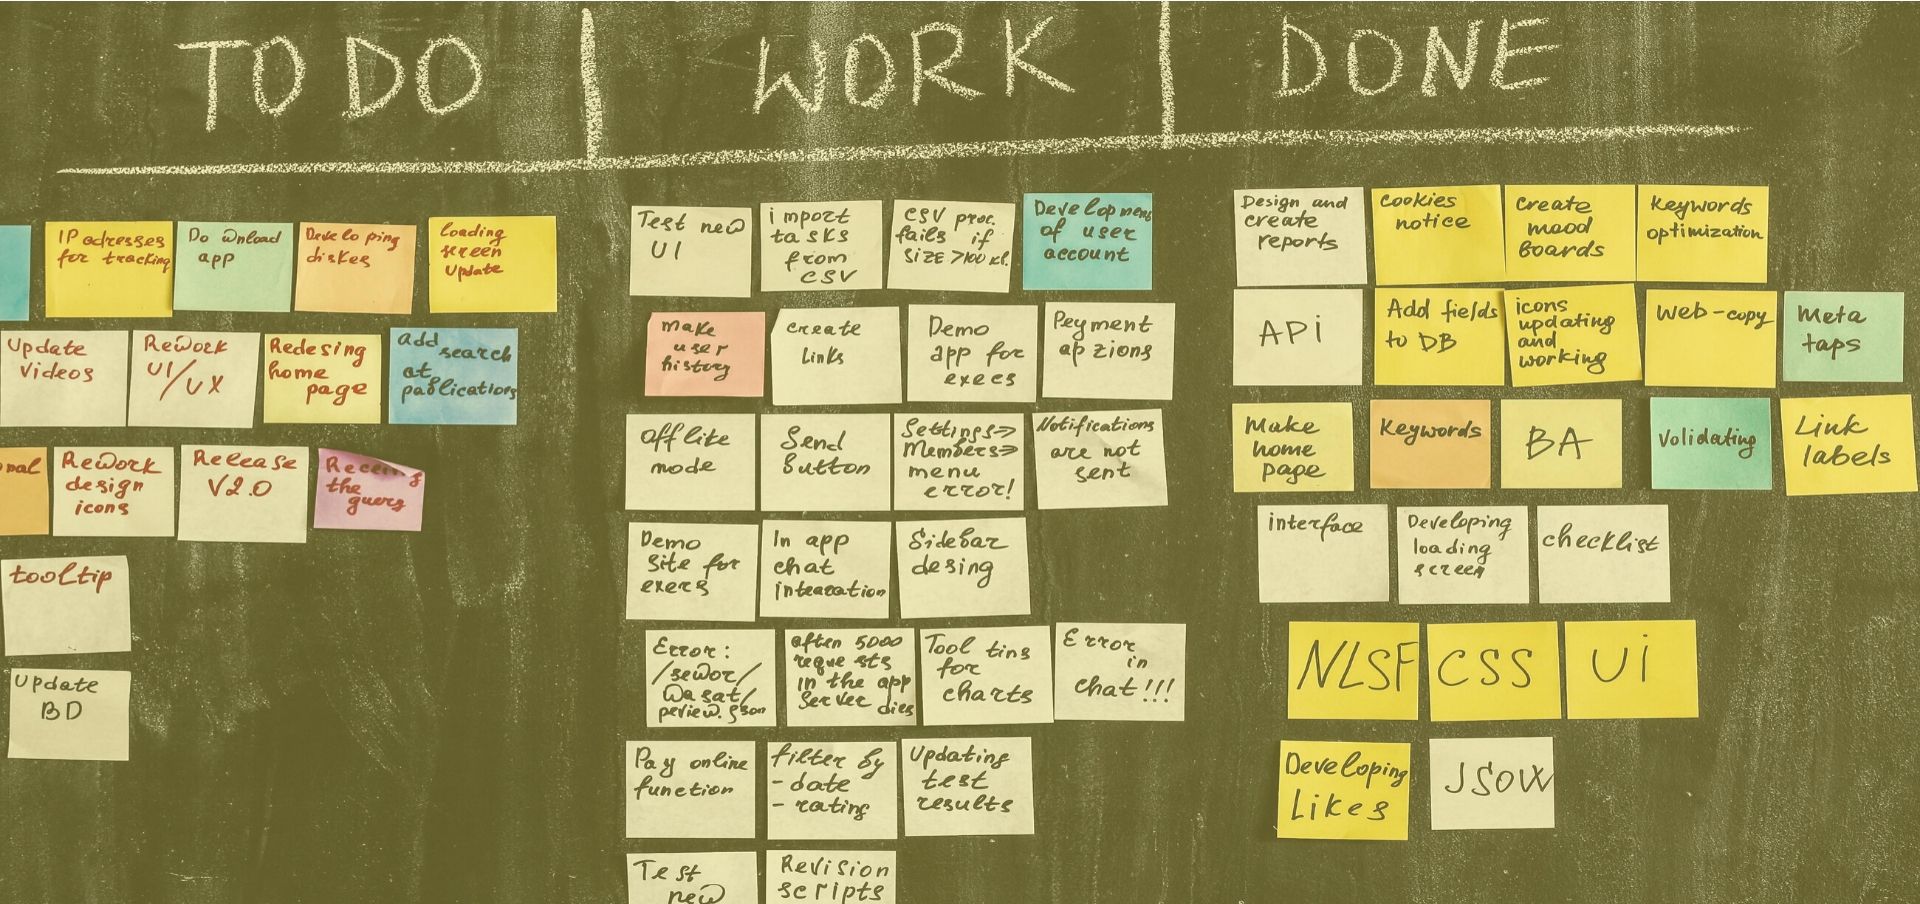 TO DO
WORK
DONE
IP adresses
for tracking
Do wnload
app
Develo ping
diskes
loading
screen
update
Update
Videos
ReWork
UI/UX
Redesing
home
page
add
search
at
pablications
nal
ReWork
design
icons
Release
V2.0
the
tooltip
Update
BD
Test new
UI
import
tasks
from
CSV
CSV proc.
fails if
SIZE >100
Development
of user
account
make
user
history
create
Links
Demo
app for
execs
Peyment
ap zions
off like
mode
Send
button
Settings=>
Members=>
menu
error!
Notifications
are not
sent
Demo
site for
exers
In app
chat
intearation
Sidebar
desing
Error:
/sewor/
Wasat/
periew.json
often 5000
reque sts
in the app
Server dies
Tool tins
for
charts
Error
in
chat!!!
Pay online
function
filter by
- date
- rating
Updating
test
results
Test
new
Revision
scripts
Design and
create
reports
cookies
notice
create
mood
boards
Keywords
optimization
API
Add fields
to DB
icons
updating
and
working
Web-copy
Meta
taps
Make
home
page
Keywords
BA
Volidating
Link
labels
interface
Developing
loading
screen
checklist
NLSF
CSS
Ui
Developing
Likes
JSOW